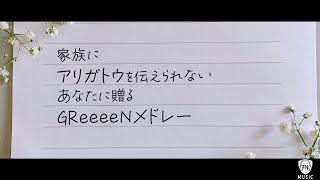 家族に
アリガトウを伝えられない
あなたに贈る
GReeeeNメドレー
MUSIC